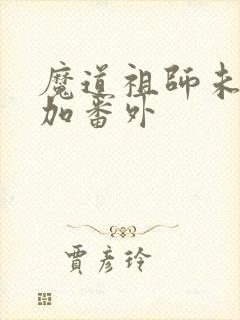 魔道祖師未
加番外
賈彥玲